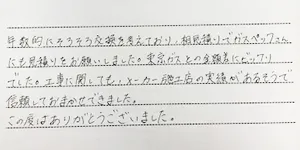 年数的にそろそろ交換を考えており、相見積りでガスペックさん
にも見積りをお願いしました。東京ガスとの金額差にビックリ
でした。工事に関しても、メーカー施工店の実績があるそうで
信頼しておまかせできました。
この度はありがとうございました。